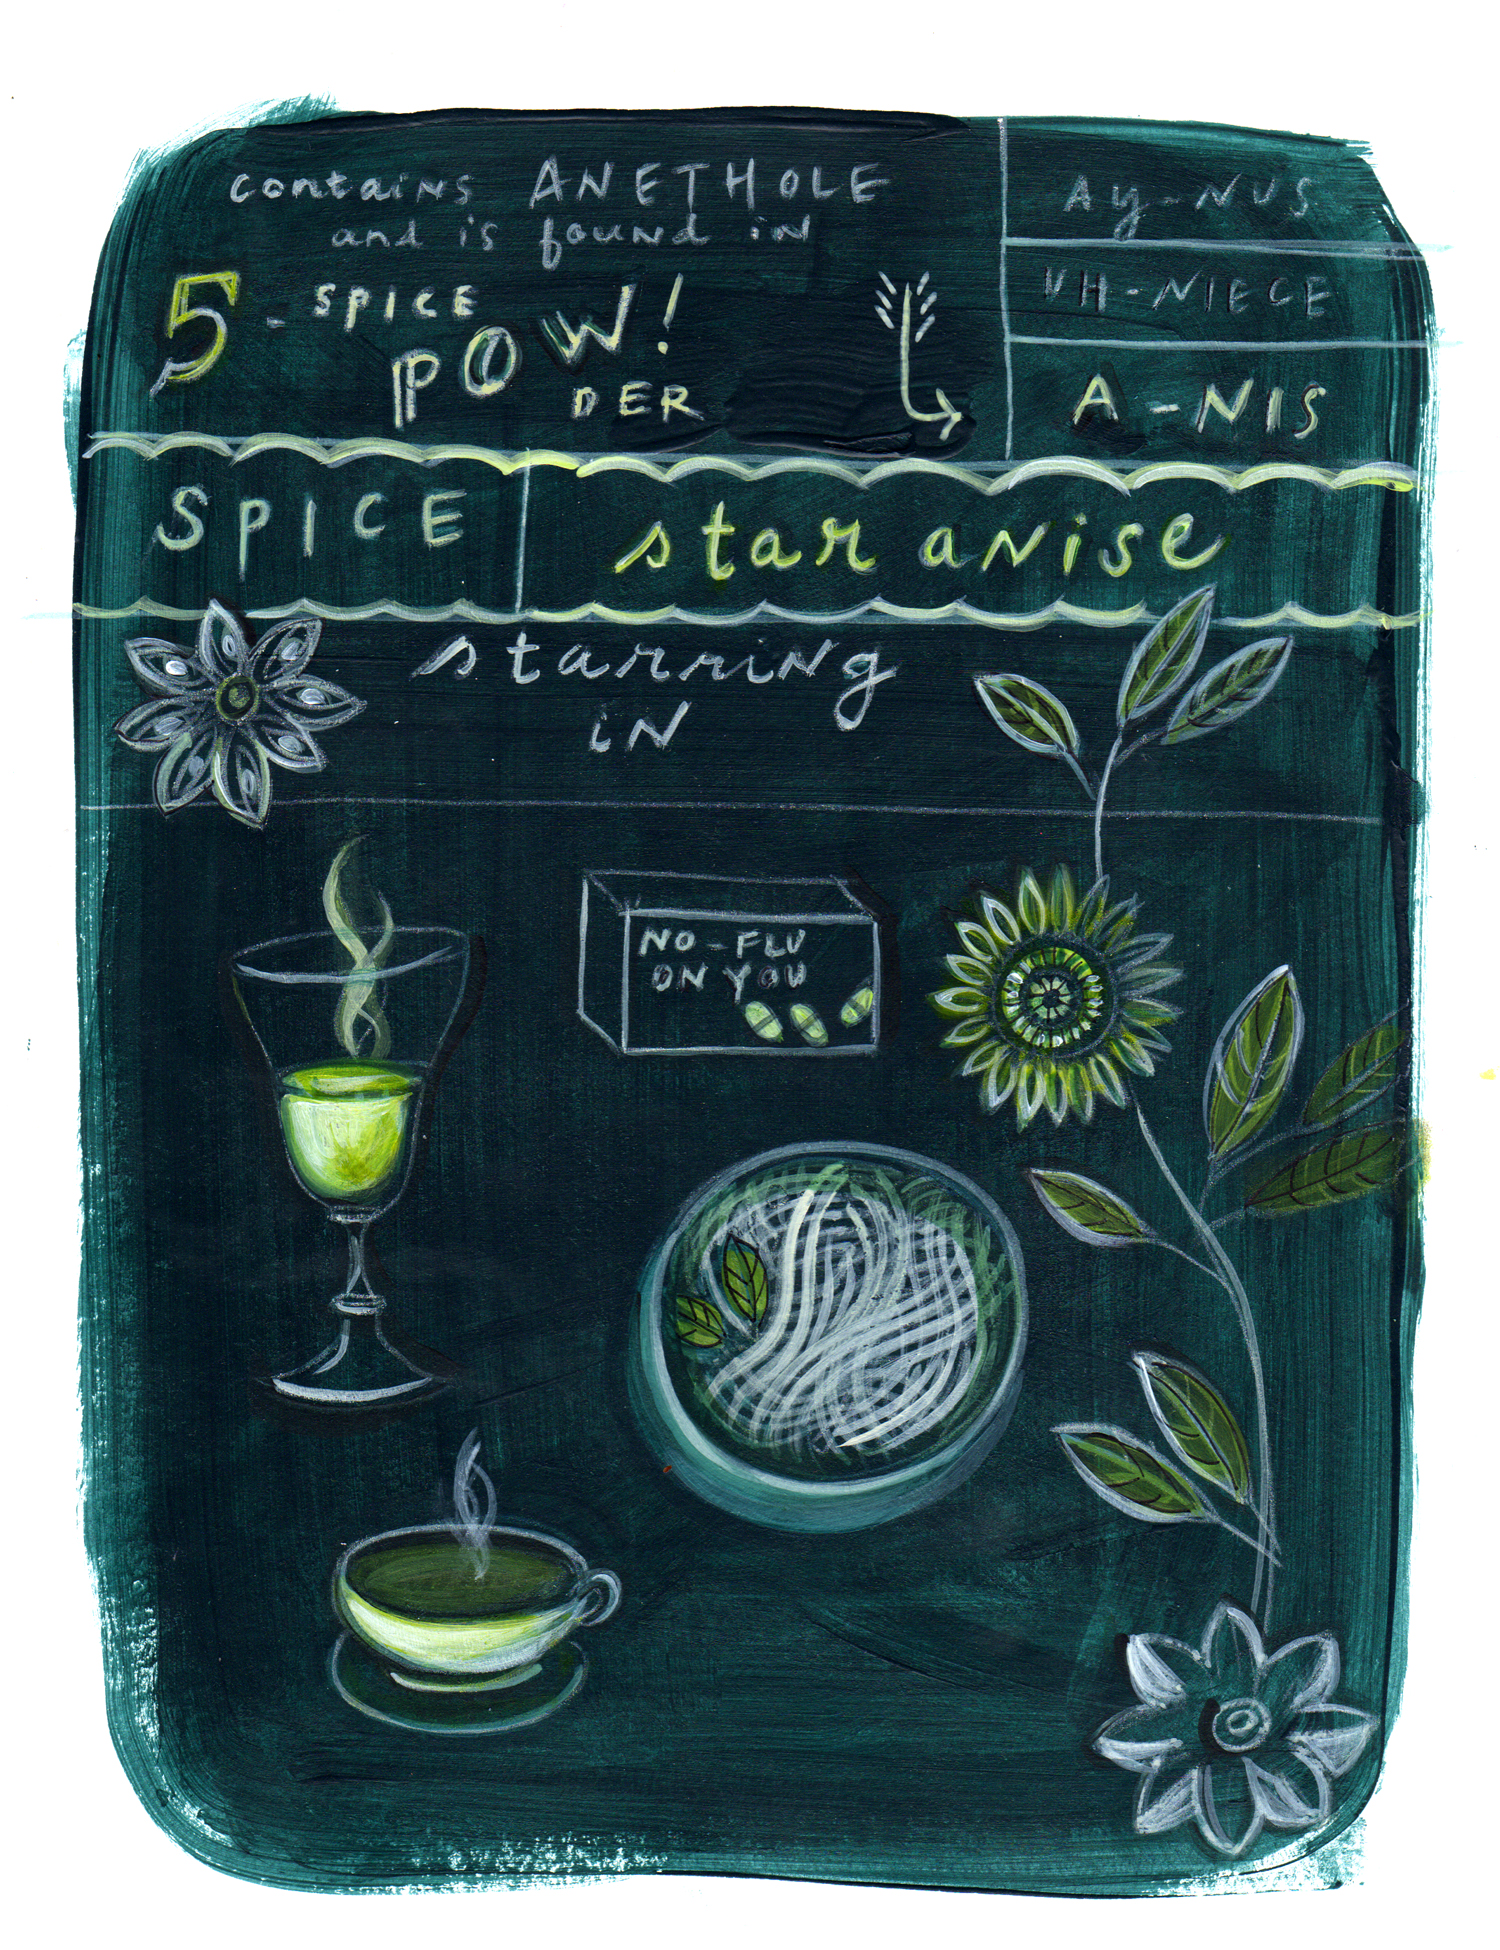 contains ANETHOLE
and is found in
5-SPICE
POW!
DER
Ay-NUS
UH-NIECE
A-NIS
SPICE
star anise
starring
iN
NO-FLU
ON YOU